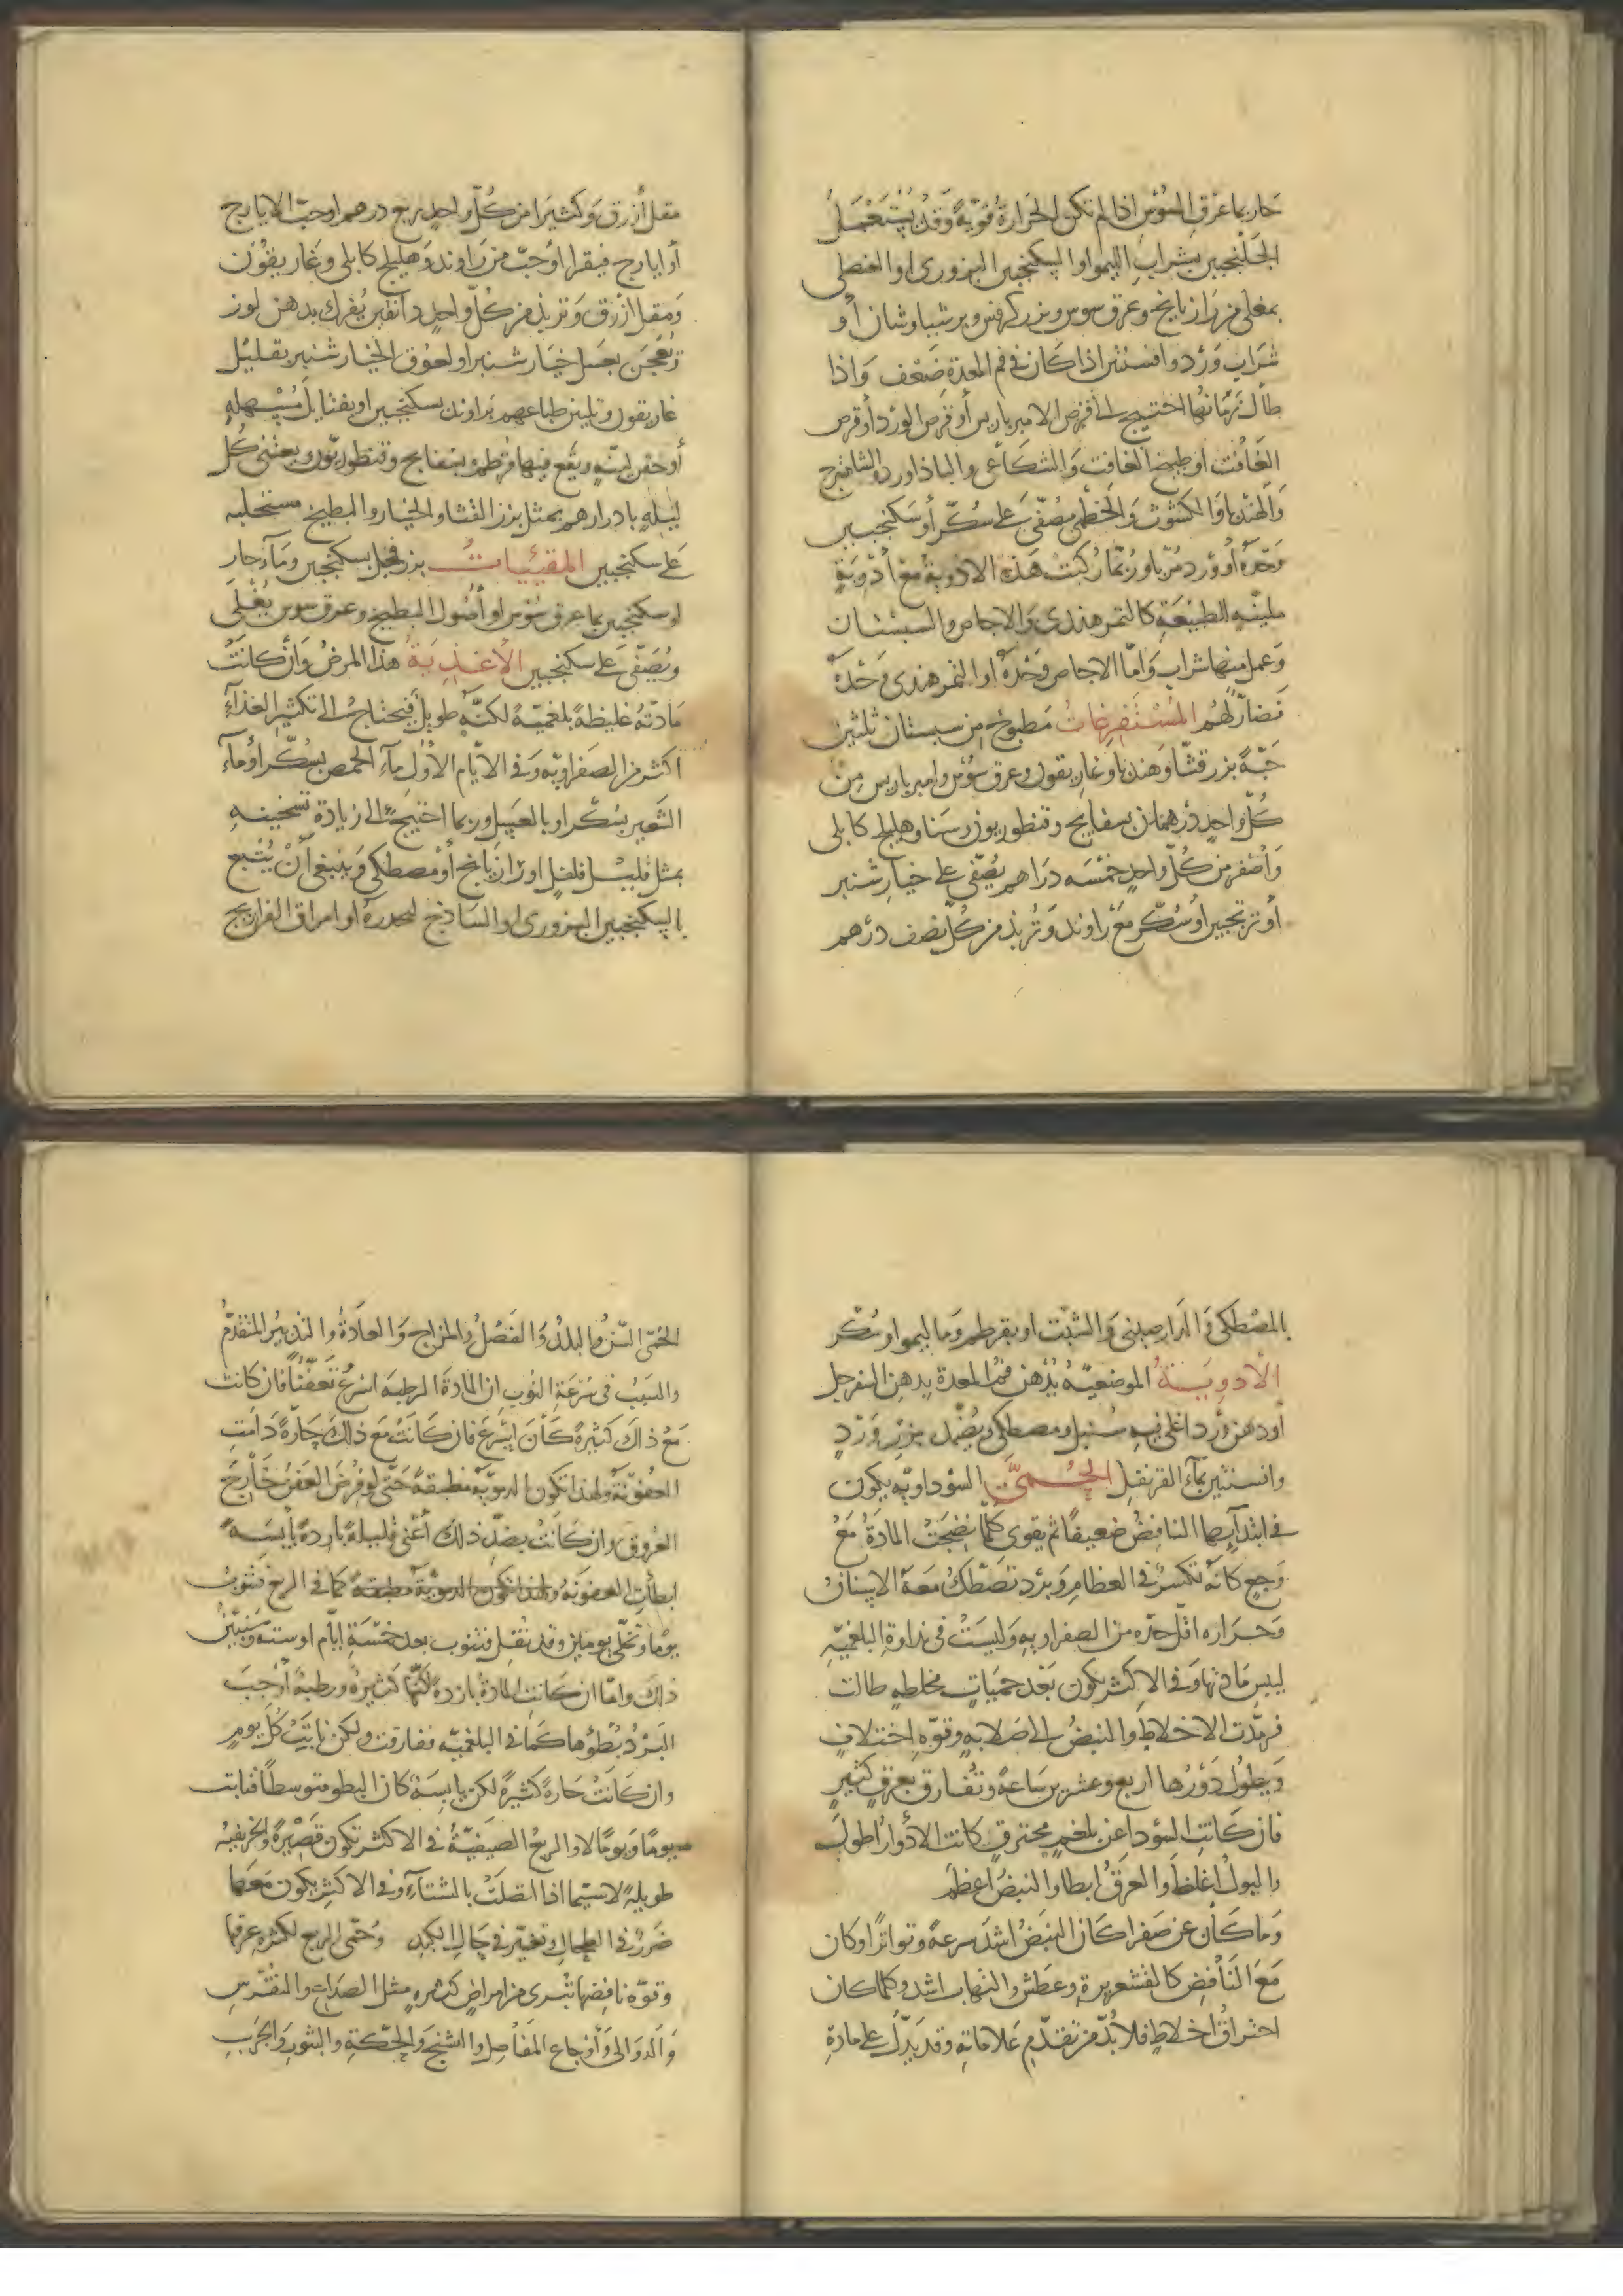 حار بماء عرق السوس اذا لم تكن الحرارة قوية وقد يستعمل
الجلنجبين بشراب الليمو او السكنجبين البزوري او العنصلي
بمغلي من رازيانج وعرق سوس وبزر كرفس وبرشياوشان أو
شراب ورد وافسنتين اذا كان في فم المعدة ضعف واذا
طال زمانها احتيج الى قرص الامبرباريس أو قرص الورد أو قرص
الغافت او طبيخ الغافت والشكاعى والباذاورد والشاهترج
والهندبا والكشوث والخطمى مصفى على سكر أو سكنجبين
وحده أو ورد مربا وربما ركبت هذه الادوية مع أدوية
ملينة الطبيعة كالتمر هندي والاجاص والسبستان
وعمل منها شراب واما الاجاص وحده او التمر هندي وحده
فضار لهم المستفرغات مطبوخ من سبستان ثلثين
حبة بزر قثا وهندبا وغاريقون وعرق سوس وامبرباريس من
كل واحد درهمان بسفايج وقنطوريون وسنا وهليلج كابلى
وأصفر من كل واحد خمسه دراهم يصفى على خيار شنبر
أو ترنجبين أو سكر مع راوند وتربذ من كل نصف درهم
مقل أزرق وكثيرا من كل واحد ربع درهم او حب الايارج
أو ايارج فيقرا او حب من راوند وهليلج كابلى وغاريقون
ومقل ازرق وتربذ من كل واحد دانقين يفرك بدهن لوز
ويعجن بعسل خيار شنبر او لعوق الخيار شنبر بقليل
غاريقون وتليين طباعهم براوند بسكنجبين او بفتايل مسهله
أو حقن لينه ويقع فيها قرطم وبسفايج وقنطوريون ويعتنى كل
ليلة بادرارهم بمثل بزر القثا والخيار والبطيخ مستحلبه
على سكنجبين المقيئيات بزر فجل بسكنجبين وماء حار
او سكنجبين بماء عرق سوس او أصول البطيخ وعرق سوس يغلى
ويصفى على سكنجبين الأغذية هذا المرض وان كانت
مادته غليظة بلغمية لكنه طويل فيحتاج الى تكثير الغذاء
اكثر من الصفراويه وفي الايام الأول ماء الحمص بسكر أو ماء
الشعير بسكر او بالعسل وربما احتيج الى زيادة تسخينه
بمثل قليل فلفل او رازيانج أو مصطكى وينبغي أن يتبع
بالسكنجبين البزورى او الساذج ليحدره او امراق الفراريج
بالمصطكى والدارصينى والشبت او بقرطم وما ليمو او سكر
الأدوية الموضعيه يدهن فم المعدة بدهن السفرجل
أو دهن ورد اغلى فيه سنبل ومصطكى ويضمد بزر ورد
وافسنتين بماء القرنفل الحميات السوداويه يكون
في ابتدايها النافض ضعيفا ثم يقوى كلما نضجت المادة مع
وجع كانه تكسر في العظام وبرد تصطك معه الاسنان
وحراره اقل حده من الصفراويه وليست في نداوة البلغميه
ليبس مادتها وفي الاكثر يكون بعد حميات مخلطه طالت
فرمدت الاخلاط والنبض الى صلابه وقوه اختلاف
ويطول دورها اربع وعشرين ساعة وتفارق بعرق كثير
فان كانت السودا عن بلغم محترق كانت الأدوار اطول
والبول اغلظ والعرق ابطا والنبض اعظم
وما كان عن صفرا كان النبض اشد سرعة وتواترا وكان
مع النافض كالقشعريرة وعطش والتهاب اشد وكلما كان
احتراق اخلاط فلا بد من تقدم علاماته وقد يدل على مادة
الحمى السن والبلد والفصل والمزاج والعادة والتدبير المتقدم
والسبب في سرعة النوب ان المادة الرطبه اسرع تعفنا فان كانت
مع ذلك كثيرة كان اسرع فان كانت مع ذلك حارة دامت
العفونة ولهذا تكون الدموية مطبقة حتى لو فرض العفن خارج
العروق وان كانت بضد ذلك أعنى قليلة باردة يابسة
ابطات العفونه ولهذا تكون الدموية مطبقة كما في الربع فتنوب
يوما وتخلى يومين وقد تقل فتنوب بعد خمسة ايام او سته وسنبين
ذلك واما ان كانت المادة بارده لكنها كثيرة ورطبة أوجب
البرد بطؤها كما في البلغميه ففارقت ولكن نابت كل يوم
وان كانت حارة كثيرة لكن يابسة كان البطو متوسطا فنابت
يوما ويوما لا والربع الصيفية في الاكثر تكون قصيرة والخريفيه
طويلة لاسيما اذا اتصلت بالشتاء وفي الاكثر يكون معها
ضرر في الطحال وتغير في حال الكبد وحمى الربع لكثره عرقها
وقوة نافضها تبرى من امراض كثيره مثل الصداع والنقرس
والدوالى وأوجاع المفاصل والتشنج والحكة والبثور والجرب